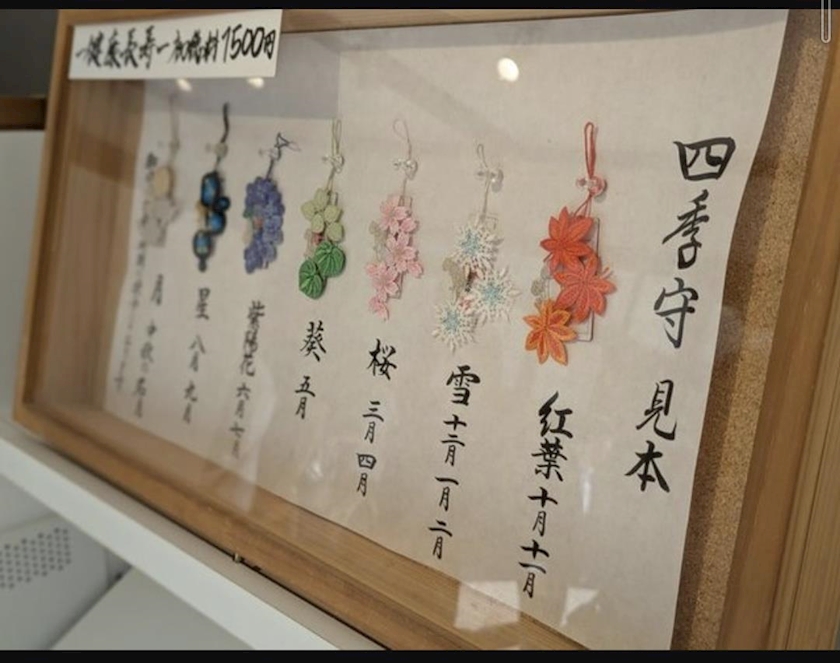 四季守 見本
紅葉 十月 十一月
雪 十二月 一月 二月
桜 三月 四月
葵 五月
紫陽花 六月 七月
星 八月 九月
月 中秋の名月
健康長寿 初穂料1500円